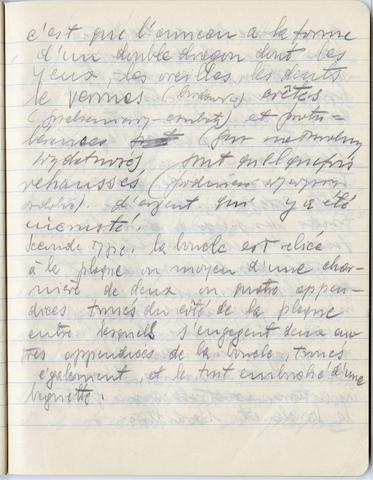 c'est que l'anneau a la forme
d'un double dragon dont les
yeux, les oreilles, les dents
le verrues (brodawki) crêtes
(grzebieniowy) et protu-
bérances (guz naturalny
wydatność) sont quelquefois
rehaussés
d'argent qui y a été
incrusté.
Seconde type. la boucle est reliée
à la plaque au moyen d'une char-
nière de deux ou quatre appen-
dices du côté de la plaque
entre lesquels s'engagent deux au-
tres appendices de la boucle,
également, et le tout embroché d'une
baguette.